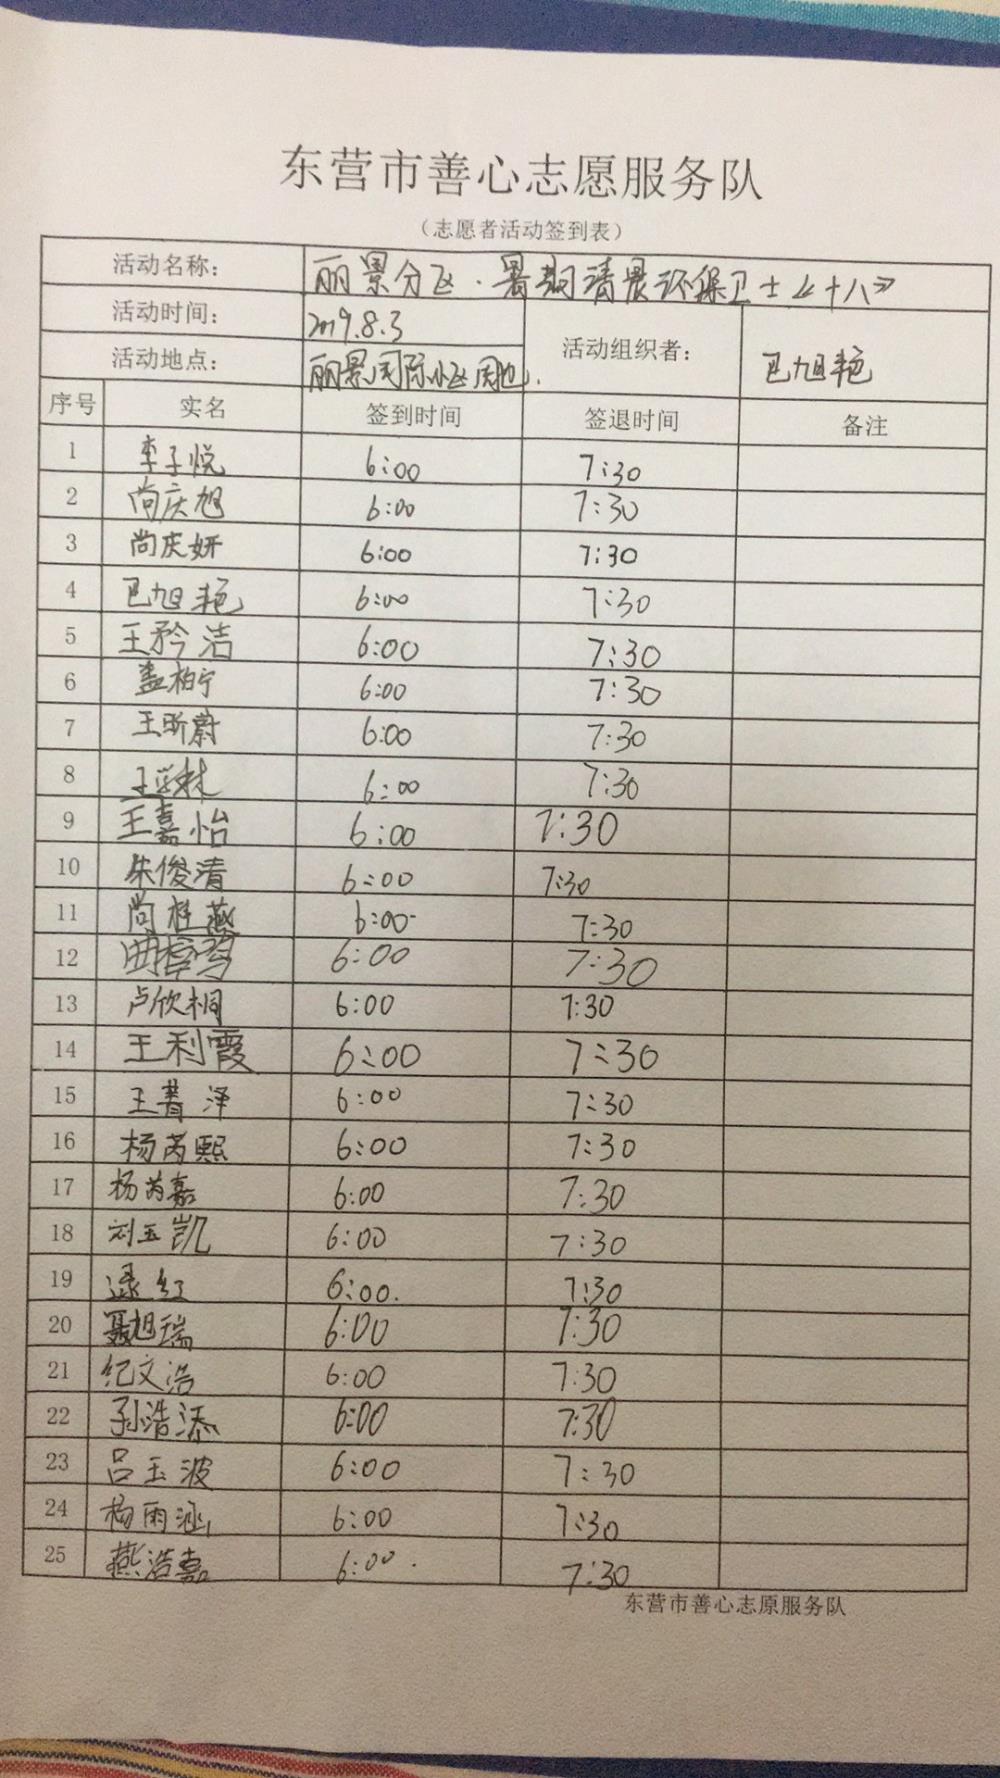 东营市善心志愿服务队
（志愿者活动签到表）
活动名称： 丽景分队·暑期清晨环保卫士《十八》
活动时间： 2019.8.3 活动组织者： 巴旭艳
活动地点： 丽景国际小区周边.
序号 实名 签到时间 签退时间 备注
1 李子悦 6:00 7:30
2 尚庆旭 6:00 7:30
3 尚庆妍 6:00 7:30
4 巴旭艳 6:00 7:30
5 王矜洁 6:00 7:30
6 孟柏宁 6:00 7:30
7 王昕蔚 6:00 7:30
8 6:00 7:30
9 王嘉怡 6:00 7:30
10 朱俊清 6:00 7:30
11 尚桂燕 6:00 7:30
12 6:00 7:30
13 卢欣桐 6:00 7:30
14 王利霞 6:00 7:30
15 王菁泽 6:00 7:30
16 杨芮熙 6:00 7:30
17 杨芮嘉 6:00 7:30
18 刘玉凯 6:00 7:30
19 逯红 6:00. 7:30
20 聂旭瑞 6:00 7:30
21 纪文浩 6:00 7:30
22 孙浩添 6:00 7:30
23 吕玉波 6:00 7:30
24 杨雨涵 6:00 7:30
25 燕浩嘉 6:00. 7:30
东营市善心志原服务队